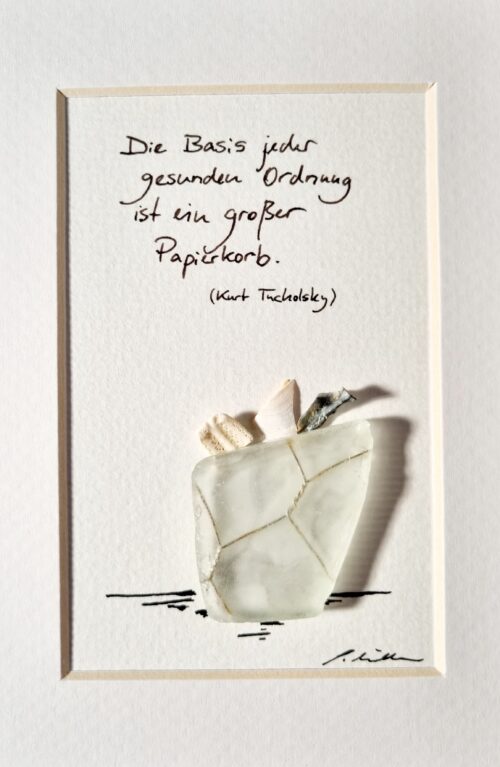 Die Basis jeder
gesunden Ordnung
ist ein großer
Papierkorb.
(Kurt Tucholsky)